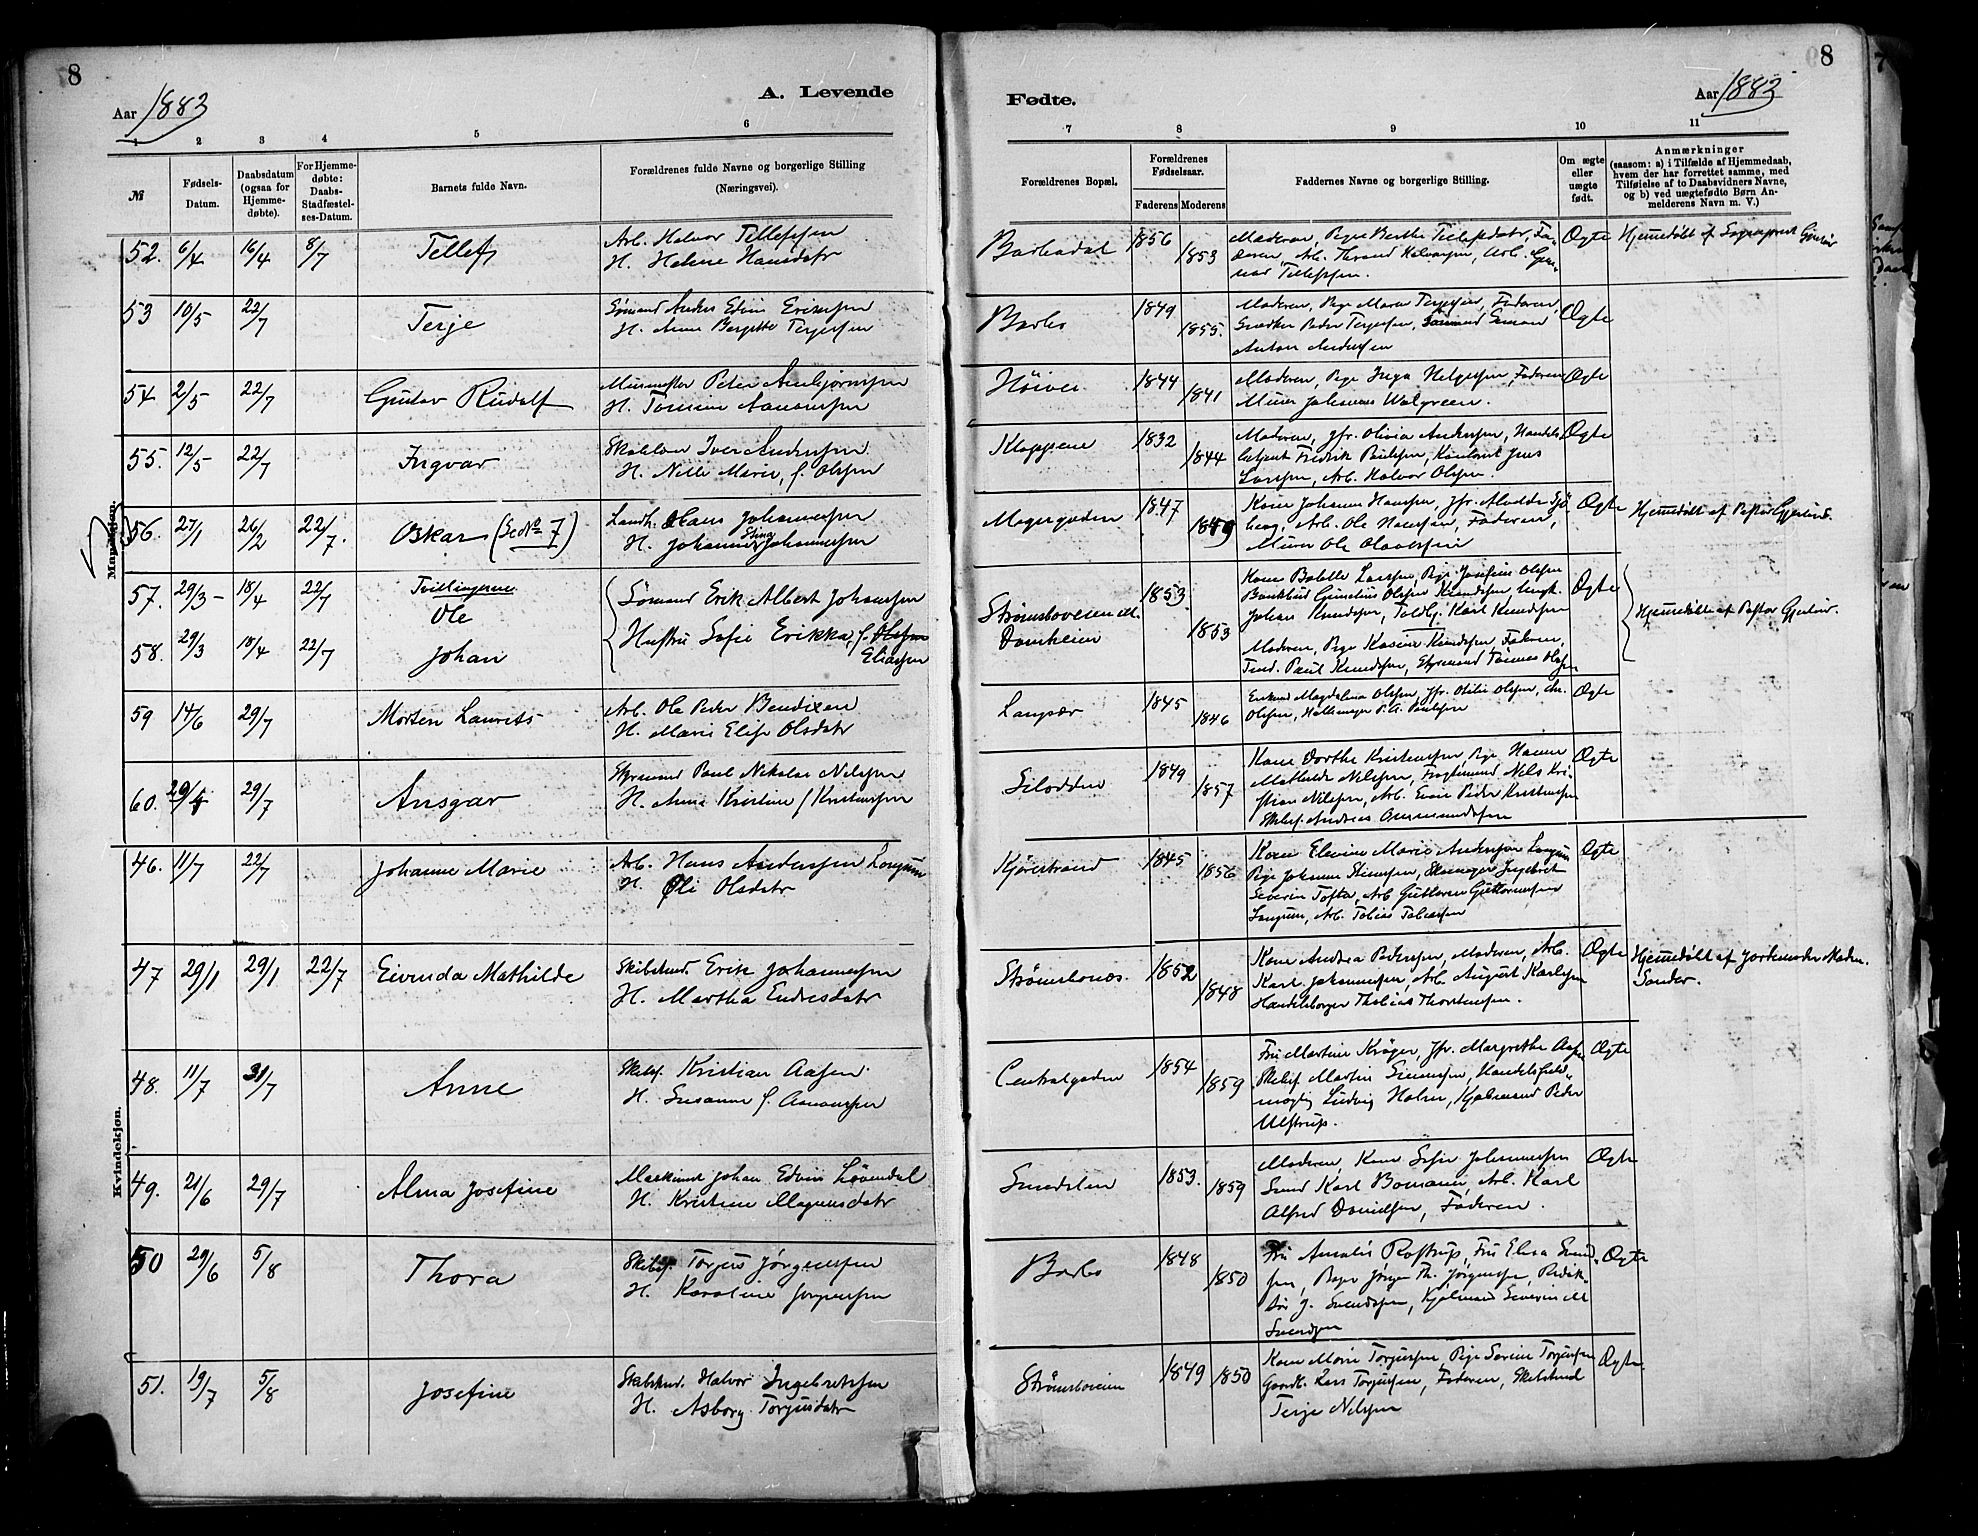 8
Aar 1883
A. Levende
1 2 3 4 5 6
№
Fødsels-Datum.
Daabsdatum (ogsaa for Hjemme-døbte).
For Hjemme-døbte: Daabs-Stadfæstel-ses-Datum.
Barnets fulde Navn.
Forældrenes fulde Navne og borgerlige Stilling
(Næringsvei).
Fødte.
Aar 1883
8
7 8 9 10 11
Forældrenes Bopæl.
Forældrenes Fødselsaar.
Faderens Moderens
Faddernes Navne og borgerlige Stilling.
Om ægte eller uægte født.
Anmærkninger
(saasom: a) i Tilfælde af Hjemmedaab,
hvem der har forrettet samme, med
Tilføielse af to Daabsvidners Navne,
og b) ved uægtefødte Børn An-
melderens Navn m. V.)
Mandkjøn.
52. 6/4 16/4 8/7 Tellef Arb. Halvor Tellefsen
H. Helene Hansdatr
Barbodal 1856 1853 Moderen, Pige Berthe Tellefsdatr, Fa-
deren, Arb. Halvorsen, Arb.
Tellefsen.
Ægte Hjemmedøbt af Sogneprest Gjerløv
53 10/5 22/7 Terje Sømand Anders Edvin Eriksen
H. Anne Bergitte Terjesen
Barbo 1849 1855. Moderen, Pige Maren Terjesen, Faderen,
Snedker Peder Terjesen, Sømand Simon
Anton Andersen
Ægte
54 2/5 22/7 Gustav Rudolf Murmester Peter Arnbjørnsen
H. Tomine Aanonsen
Høivei 1844 1841 Moderen, Pige Inga Helgesen, Faderen
Murer Johannes Walgreen.
Ægte
55. 12/5 22/7 Ingvar Iver Andersen
H. Nille Marie, f. Olsen
Kloppene 1832 1844 Moderen, Jfr. Olivia Andersen, Handels
betjent Fredrik Paulsen, Jens
Larsen, Arb. Halvor Olsen.
Ægte
56. 27/1 26/2 22/7. Oskar (Se № 7) Landh. Claus Johannesen
H. Johanne Stina Johannesen
Mogergaden 1847 1849 Kone Johanne Hansen, Jfr. Mathilde Sjö
berg, Arb. Ole Hansen, Faderen,
Murer Ole Olavesen
Ægte Hjemmedøbt af Pastor Gjerløv.
57. 29/3 18/4 22/7 Tvillingerne
Ole
Sømand Erik Albert Johansen
Hustru Sofie Erikka, f. Olsen
Eliassen
Strømsboveien
1853. 1853 Kone Bolette Larsen, Pige Josefine Olsen
Gunelius Olsen Knudsen, ungk.
Johan Knudsen, Karl Knudsen
Ægte Hjemmedøbt af Pastor Gjerløv.
58. 29/3 18/4 22/7 Johan
Moderen, Pige Kasine Knudsen, Faderen,
Paul Knudsen, Styrmand Tønnes Olsen
59 14/6 29/7 Morten Laurits Arb. Ole Peder Bendixen
H. Marie Elise Olsdatr
Langsæ 1845 1846 Enkemd Magdalena Olsen, Jfr. Otilie Olsen, Chr.
Olsen, P. A. Paulsen
Ægte
60. 29/4 29/7 Ansgar Styrmand Paul Nikolai Nilsen
H. Anna Kristine f Kristensen
Silodden 1849 1857 Kone Dorthe Kristensen, Pige Hanne
Mathilde Nilsen, Nils Kri-
stian Nilsen, Arb. Even Peder Kristensen
Skibsf. Andreas Ommundsen
Ægte
Kvindekjøn.
46. 11/7 22/7 Johanne Marie Arb. Hans Andersen Longum
H. Oli Olsdatr
Kjørestrand 1845 1856 Kone Elevine Marie Andersen Longum
Pige Johanne Steensen, Skomager Ingebret
Severin Tofte, Arb. Guttorm Guttormsen
Longum, Arb. Tobias Tobiasen
Ægte
47 29/1 29/1 22/7 Eivinda Mathilde Skibstmd. Erik Johannesen
H. Martha Endresdatr
Strømsbonæs. 1852 1848 Kone Andrea Pedersen, Moderen, Arb.
Karl Johannesen, Arb. August Karlsen
Handelsborger Thobias Thorstensen.
Ægte Hjemmedøbt af Jordemoder Madm.
Sander.
48. 11/7 31/7 Anne Skibsf. Kristian Aasen.
H. Susanne f. Aanonsen
Centralgaden 1854 1859 Fru Martine Krøger, Jfr. Margrethe Aasen
Skibsf. Martin Simonsen, Handelsfuld-
mægtig Ludvig Holm, Kjøbmand Peder
Ulstrup.
Ægte
49. 21/6 29/7 Alma Josefine Maskinist Johan Edvin Løvendal
H. Kristine Magnusdatr
Smedsten 1853. 1859 Moderen, Kone Sofie Johannesen
Smed Karl Bomann, Arb. Karl
Alfred Davidsen, Faderen.
Ægte
50 29/6 5/8 Thora Skibsf. Torjus Jørgensen
H. Karoline Jørgensen
Barbo 1848 1850 Fru Amalie Roftrup, Fru Elisa Svend-
sen, Jørgen Th. Jørgensen, Redak-
tør J. Svendsen, Kjøbmand Severin M
Svendsen
Ægte
51. 19/7 5/8 Josefine Skibstmd. Halvor Ingebretsen
H. Asborg Torjusdatr
Strømsboveien 1849 1850 Kone Marie Torjussen, Pige Sorine Torjussen
Gaardb. Lars Torjussen, Faderen, Skibstmd
Terje Nilsen
Ægte